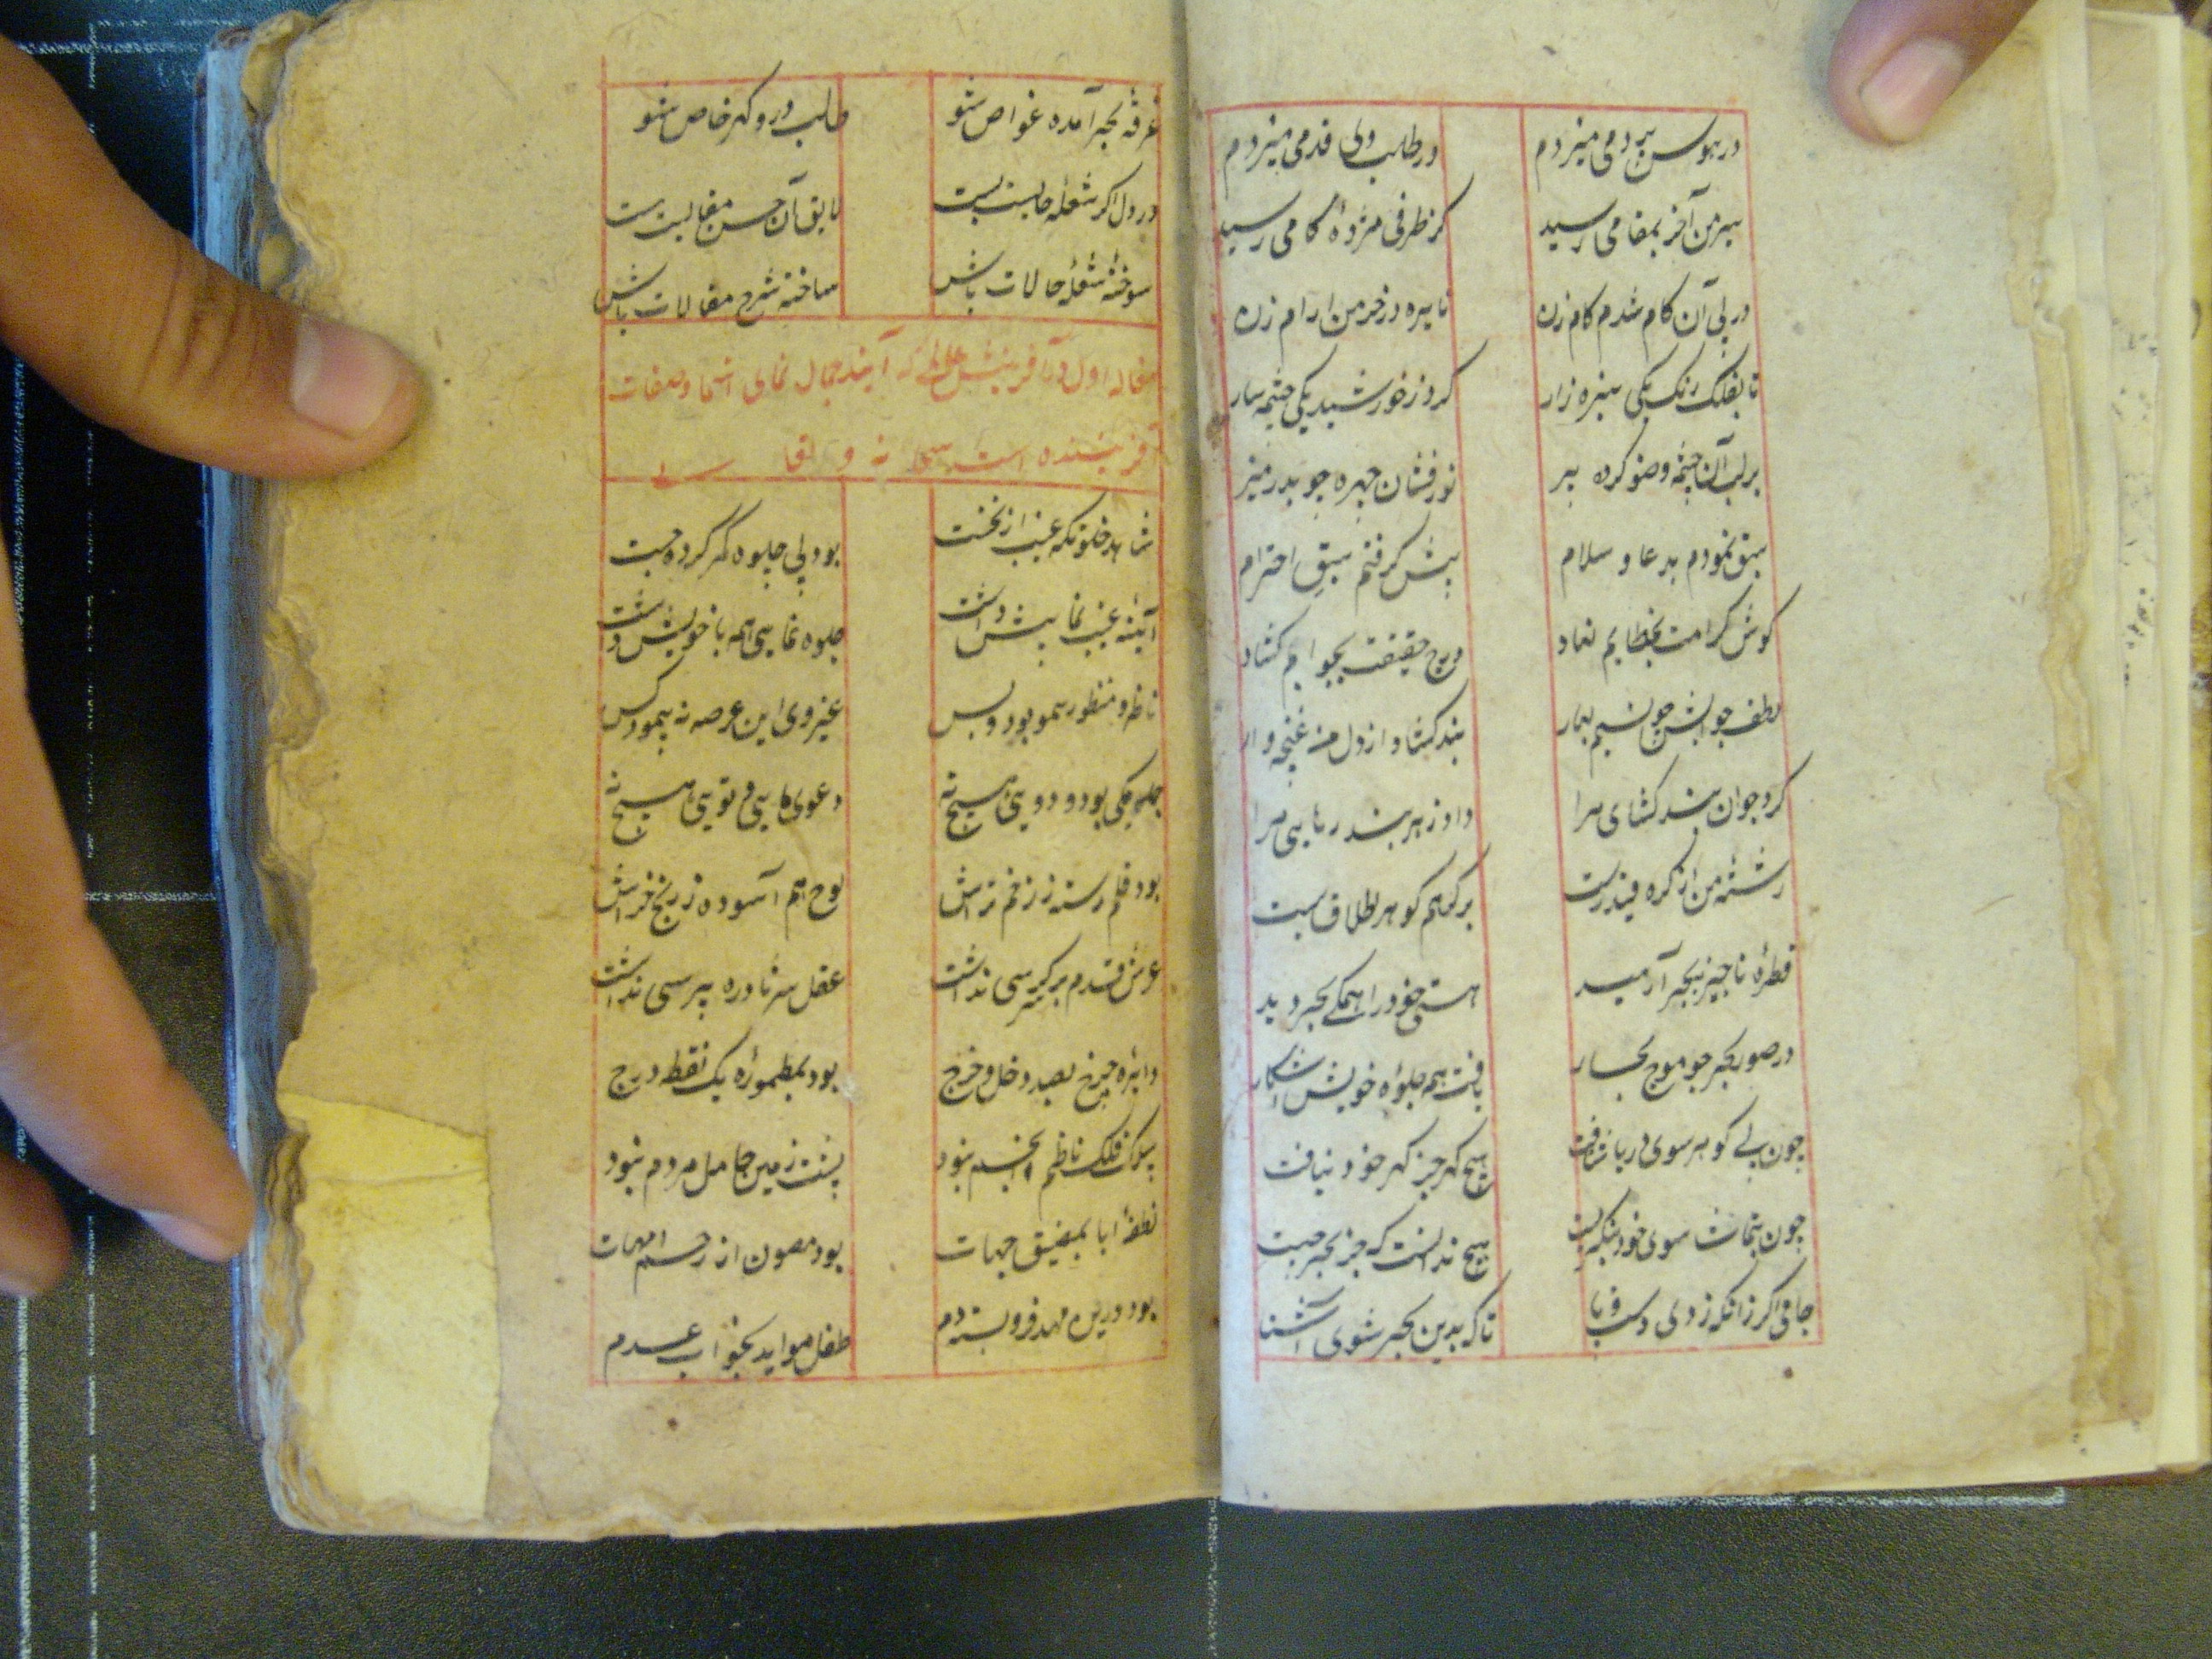 در هوس پیر دمی میزدم در طلب ولی قدمی میزدم
سیر من آخر بمقامی رسید کز طرفی مژدهٔ کامی رسید
در پی آن کام شدم کام زن نایره در خرمن ارام زن
تا بفلک رنک یکی سبزه زار کرد ز خورشید یکی چشمه سار
بر لب آن چشمه وضو کرده پیر نور فشان چهره چو بدر منیر
سبق نمودم بدعا و سلام پیش کرفتم سبق احترام
کوش کرامت بخطابم نهاد درج حقیقت بجوابم کشاد
لطف جوابش چو نسیم بهار بند کشاد از دل من غنچه وار
کرد جوان بند کشای مرا داد ز هر بند رهایی مرا
رشتهٔ من از کره قید رست بر کهرم کوهر اطلاق بست
قطرهٔ ناچیز ببحر آرمید هستی خود را همکی بحر دید
در صور بحر چو موج بحار یافت همه جلوهٔ خویش آشکار
چون پی کوهر سوی دریا شتافت هیچ کهر جز کهر خود نیافت
چون بتماشا سوی خود بنکریست هیچ ندانست که جز بحر چیست
جامی اکر زانکه زدی دست و پا تا که بدین بحر شوی آشنا
غرقهٔ بحر آمده غواص شو طالب در و کهر خاص شو
در دل اکر شعلهٔ حالیت هست لایق آن حسن مقالیت هست
سوختهٔ شعلهٔ حالات باش ساختهٔ شرح مقالات باش
مقاله اول در آفرینش عالم که آینه جمال نمای اسما و صفات
آفریننده است سبحانه و تعالی
شاهد خلوتکه غیب از نخست بود پی جلوه کمر کرده چست
آینهٔ غیب نما پیش داشت جلوه نمایی همه با خویش داشت
ناظر و منظور همو بود و بس غیر وی این عرصه نه پیمود کس
جمله یکی بود و دویی هیچ نه دعوی مایی و تویی هیچ نه
بود قلم رسته ز زخم تراش لوح هم آسوده ز رنج خراش
عرش قدم بر سر کرسی نداشت عقل سر نادره پرسی نداشت
دایرهٔ چرخ بصد دخل و خرج بود بمطمورهٔ یک نقطه درج
سلک فلک ناظم انجم نبود پشت زمین حامل مردم نبود
نطفهٔ ابا بمضیق جهات بود مصون از رحم امهات
بود درین مهد فرو بسته دم طفل موالید بخواب عدم